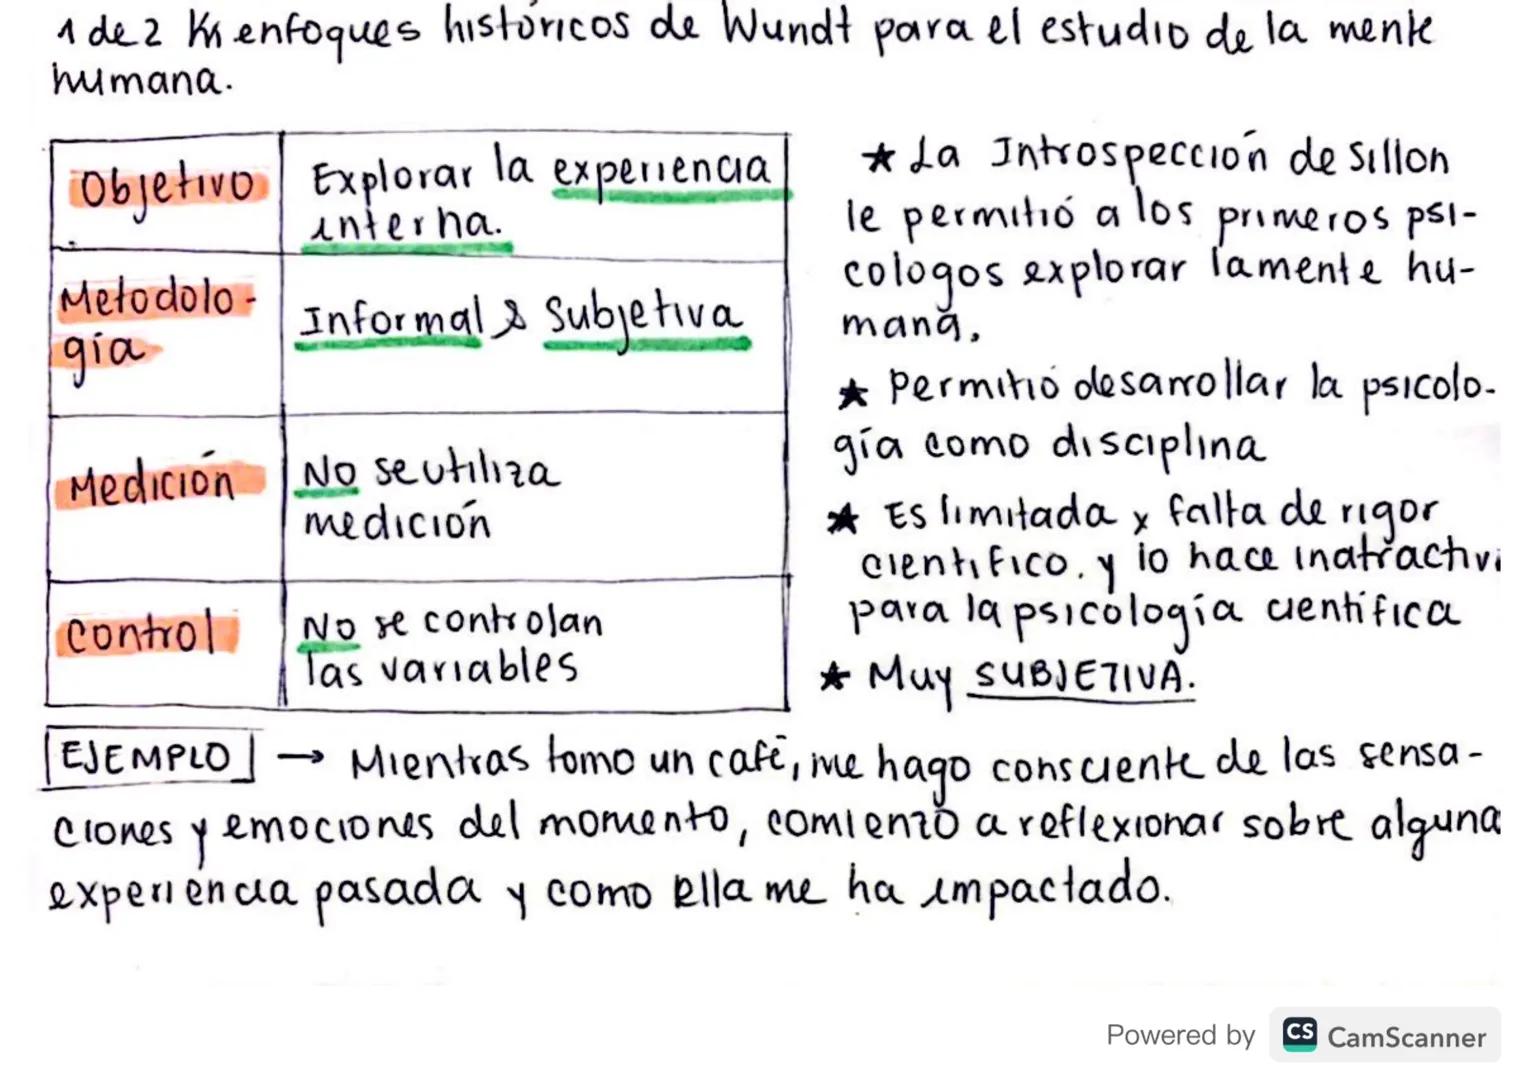 1 de 2 enfoques históricos de Wundt para el estudio de la mente
humana.
Objetivo
Explorar la experiencia
interna.
Metodolo-
gía
Informal & Subjetiva
Medición
No se utiliza
medición
Control
No se controlan
las variables
★ La Introspección de Sillon
le permitió a los primeros psi-
cologos explorar la mente hu-
mana.
★ Permitió desarrollar la psicolo-
gía como disciplina
★ Es limitada y falta de rigor
científico. y lo hace inatractiv
para la psicología científica
★ Muy SUBJETIVA.
EJEMPLO → Mientras tomo un café, me hago consciente de las sensa-
ciones y emociones del momento, comienzo a reflexionar sobre alguna
experiencia pasada y como ella me ha impactado.
Powered by CS CamScanner